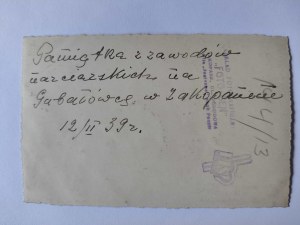 Pamiątka z zawodów
narciarskich na
Gubałówce w Zakopanem
12/II 39r.
4/13